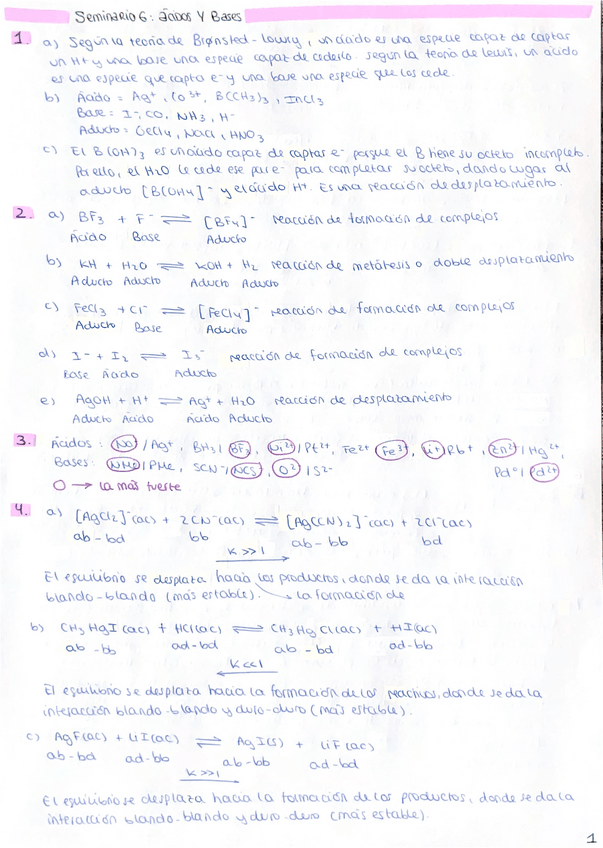 Seminario 6: ácidos y Bases
1. a) Según la teoría de Brønsted-Lowry, un ácido es una especie capaz de captar
un H+ y una base una especie capaz de cederlo. Según la teoría de Lewis, un ácido
es una especie que capta e- y una base una especie que los cede.
b) Ácido = Ag+, Co3+, B(CH3)3, InCl3
Base = I-, CO, NH3, H-
Aducto = GeCl4, NaCl, HNO3
c) El B(OH)3 es un ácido capaz de captar e- porque el B tiene su octeto incompleto.
Para ello, el H2O le cede ese par e- para completar su octeto, dando lugar al
aducto [B(OH)4]- y el ácido H+. Es una reacción de desplazamiento.
2. a) BF3 + F- ⇌ [BF4]- reacción de formación de complejos
Ácido Base Aducto
b) KH + H2O ⇌ KOH + H2 reacción de metátesis o doble desplazamiento
Aducto Aducto Aducto Aducto
c) FeCl3 + Cl- ⇌ [FeCl4]- reacción de formación de complejos
Aducto Base Aducto
d) I- + I2 ⇌ I3- reacción de formación de complejos
Base Ácido Aducto
e) AgOH + H+ ⇌ Ag+ + H2O reacción de desplazamiento
Aducto Ácido Ácido Aducto
3. Ácidos: Na+/Ag+, BH3/BF3, Ni2+/Pt2+, Fe2+/Fe3+, Li+/Rb+, Zn2+/Hg2+,
Bases: NMe3/PMe3, SCN-/NCS-, O2-/S2- Pd0/Pd2+
O → la más fuerte
4. a) [AgCl2]-(ac) + 2CN-(ac) ⇌ [Ag(CN)2]-(ac) + 2Cl-(ac)
ab-bd bb ab-bb bd
K>>1
El equilibrio se desplaza hacia los productos, donde se da la interacción
blando-blando (más estable). la formación de
b) CH3HgI(ac) + HCl(ac) ⇌ CH3HgCl(ac) + HI(ac)
ab-bb ad-bd ab-bd ad-bb
K<<1
El equilibrio se desplaza hacia la formación de los reactivos, donde se da la
interacción blando-blando y duro-duro (más estable).
c) AgF(ac) + LiI(ac) ⇌ AgI(s) + LiF(ac)
ab-bd ad-bb ab-bb ad-bd
K>>1
El equilibrio se desplaza hacia la formación de los productos, donde se da la
interacción blando-blando y duro-duro (más estable).
1